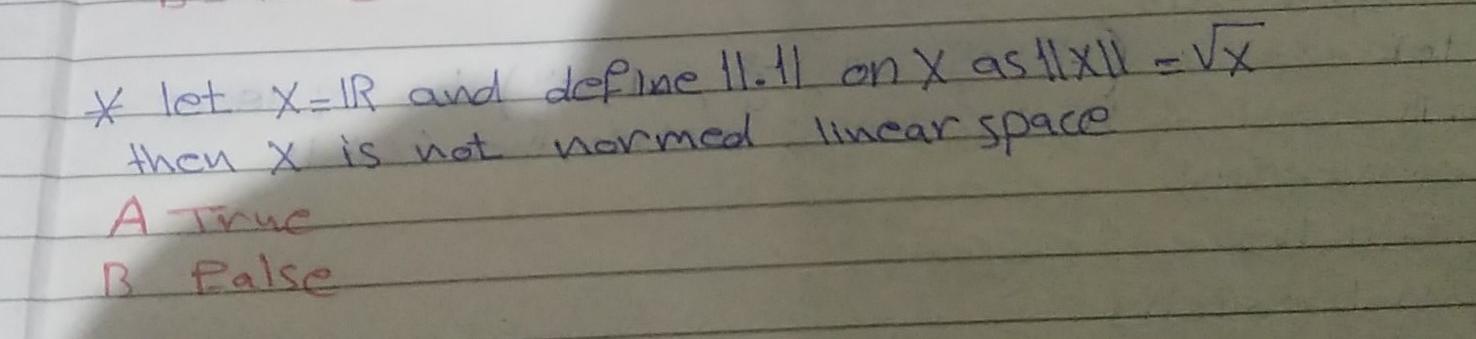 * let X=IR and define ||.|| on X as ||X|| = √x
then X is not normed linear space
A True
B False